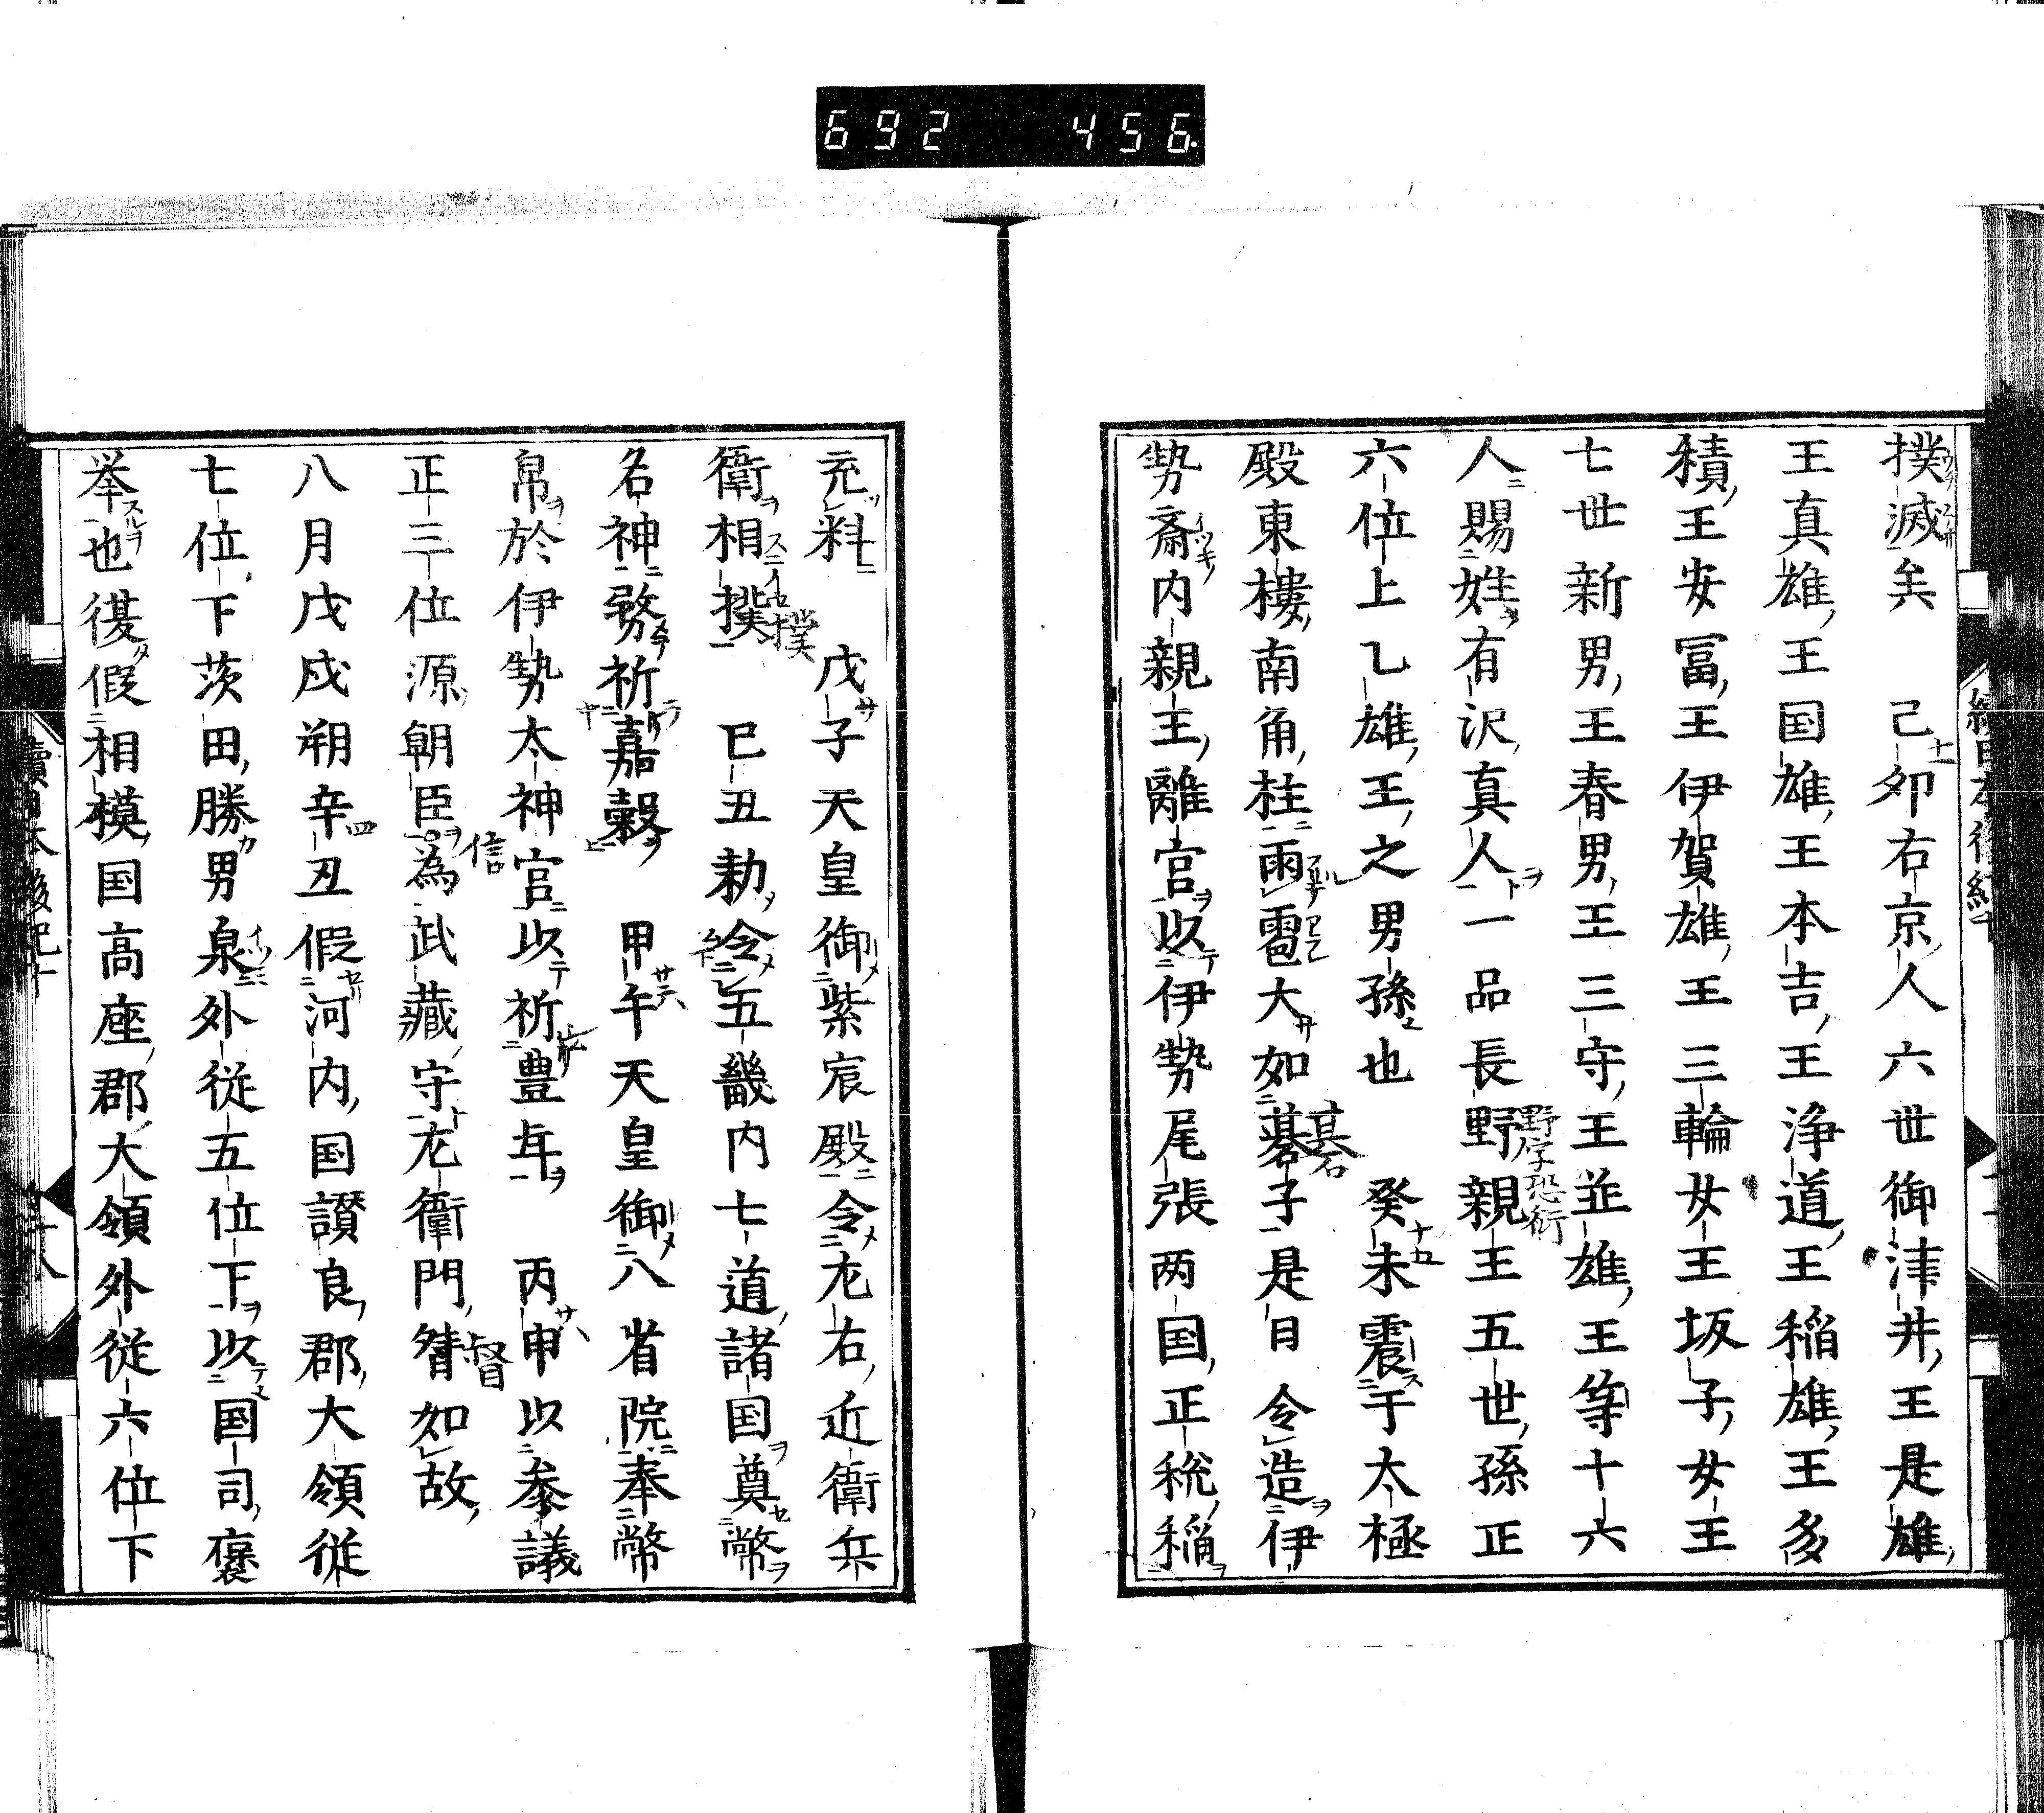 692 456
撲滅矣　己卯右京人六世御津井王是雄
王真雄王国雄王本吉王浄道王稲雄王多
積王安冨王伊賀雄王三輪女王坂子女王
七世新男王春男王三守王並雄王等十六
人賜姓有沢真人一品長野親王五世孫正
野字恐衍
六位上乙雄王之男孫也　癸未震于太極
殿東樓南角柱雨雹大如碁子是日令造伊
勢斎内親王離宮以伊勢尾張两国正税稲
充料　戊子天皇御紫宸殿令左右近衛兵
衛相撲　己丑勅令五畿内七道諸国奠幣
名神務祈嘉穀　甲午天皇御八省院奉幣
帛於伊勢太神宮以祈豊年　丙申以参議
正三位源朝臣為武藏守左衛門督如故
信
八月戊戌朔辛丑假河内国讃良郡大領従
七位下茨田勝男泉外従五位下以国司褒
举也復假相模国高座郡大領外従六位下